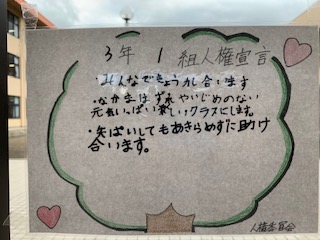 3年1組人権宣言
・みんなできょうりょくし合います
・なかまはずれやいじめのない
元気いっぱい楽しいクラスにします。
・失ぱいしてもあきらめずに助け
合います。
人権委員会